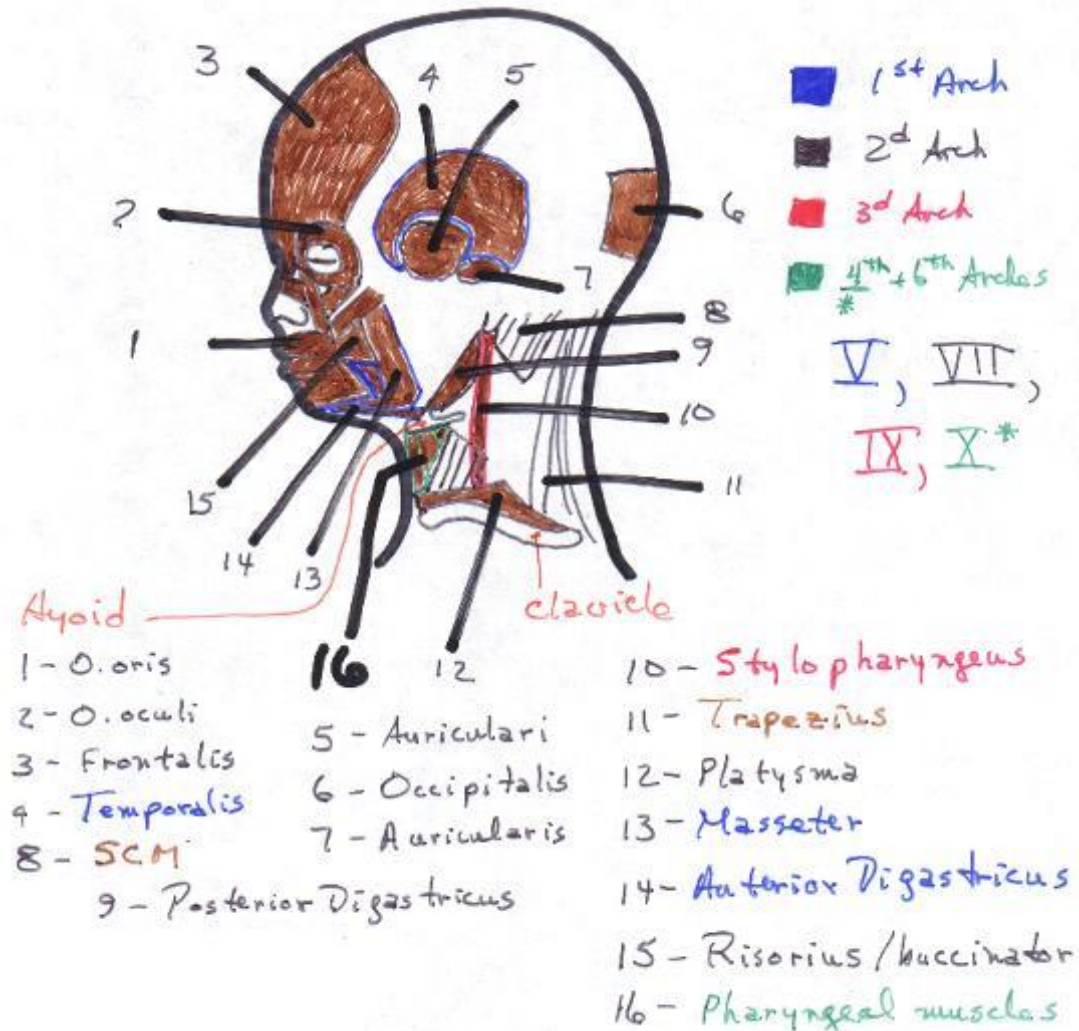 3
4
5
2
6
7
1
8
9
10
11
15
14
13
16
12
1st Arch
2d Arch
3d Arch
4th + 6th Arches
*
V, VII,
IX, X*
Hyoid
clavicle
1 - O. oris
2 - O. oculi
3 - Frontalis
4 - Temporalis
8 - SCM
9 - Posterior Digastricus
5 - Auriculari
6 - Occipitalis
7 - Auricularis
10 - Stylopharyngeus
11 - Trapezius
12 - Platysma
13 - Masseter
14 - Anterior Digastricus
15 - Risorius / buccinator
16 - Pharyngeal muscles